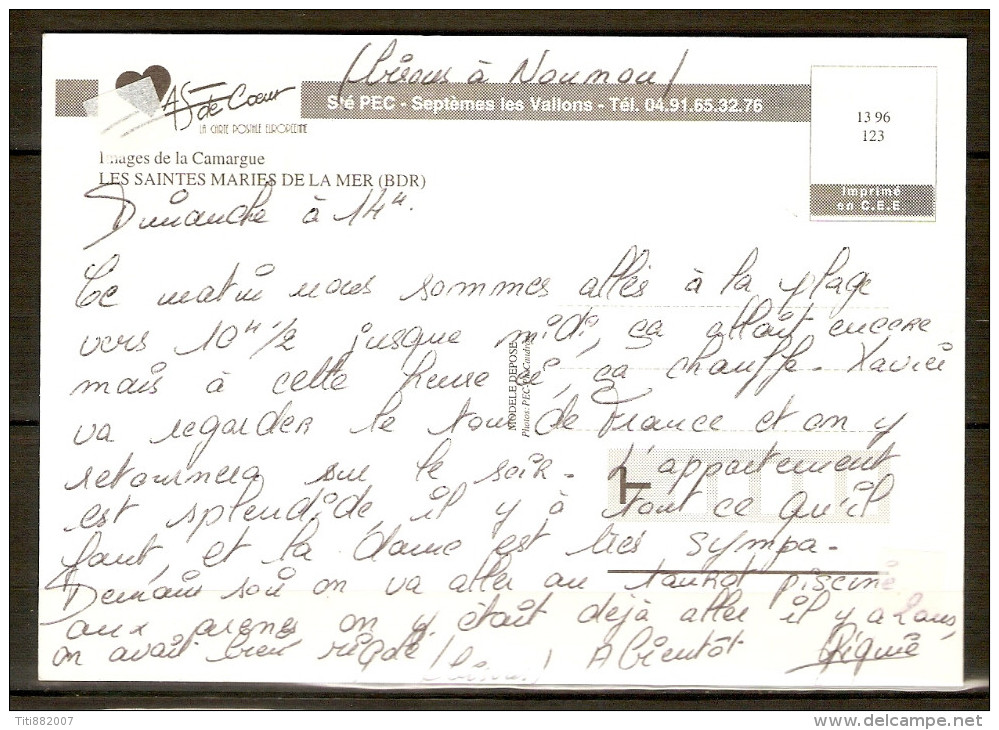 (bisous à Nounou)
AS de Coeur
LA CARTE POSTALE EUROPEENNE
Sté PEC - Septèmes les Vallons - Tél. 04.91.65.32.76
13 96
123
Imprimé
en C.E.E
Images de la Camargue
LES SAINTES MARIES DE LA MER (BDR)
Dimanche à 14H.
Ce matin nous sommes allés à la plage
vers 10H 1/2 jusque midi, ça allait encore
mais à cette heure ci, ça chauffe. Xavier
va regarder le tour de France et on y
retournera sur le soir. L'appartement
est splendide, il y à tout ce qu'il
faut, et la dame est très sympa.
Demain soir on va aller au taureau piscine
aux arènes on y était déjà aller il y a 2 ans,
on avait bien rigolé A bientôt
MODELE DEPOSE
Titi882007
www.delcampe.net